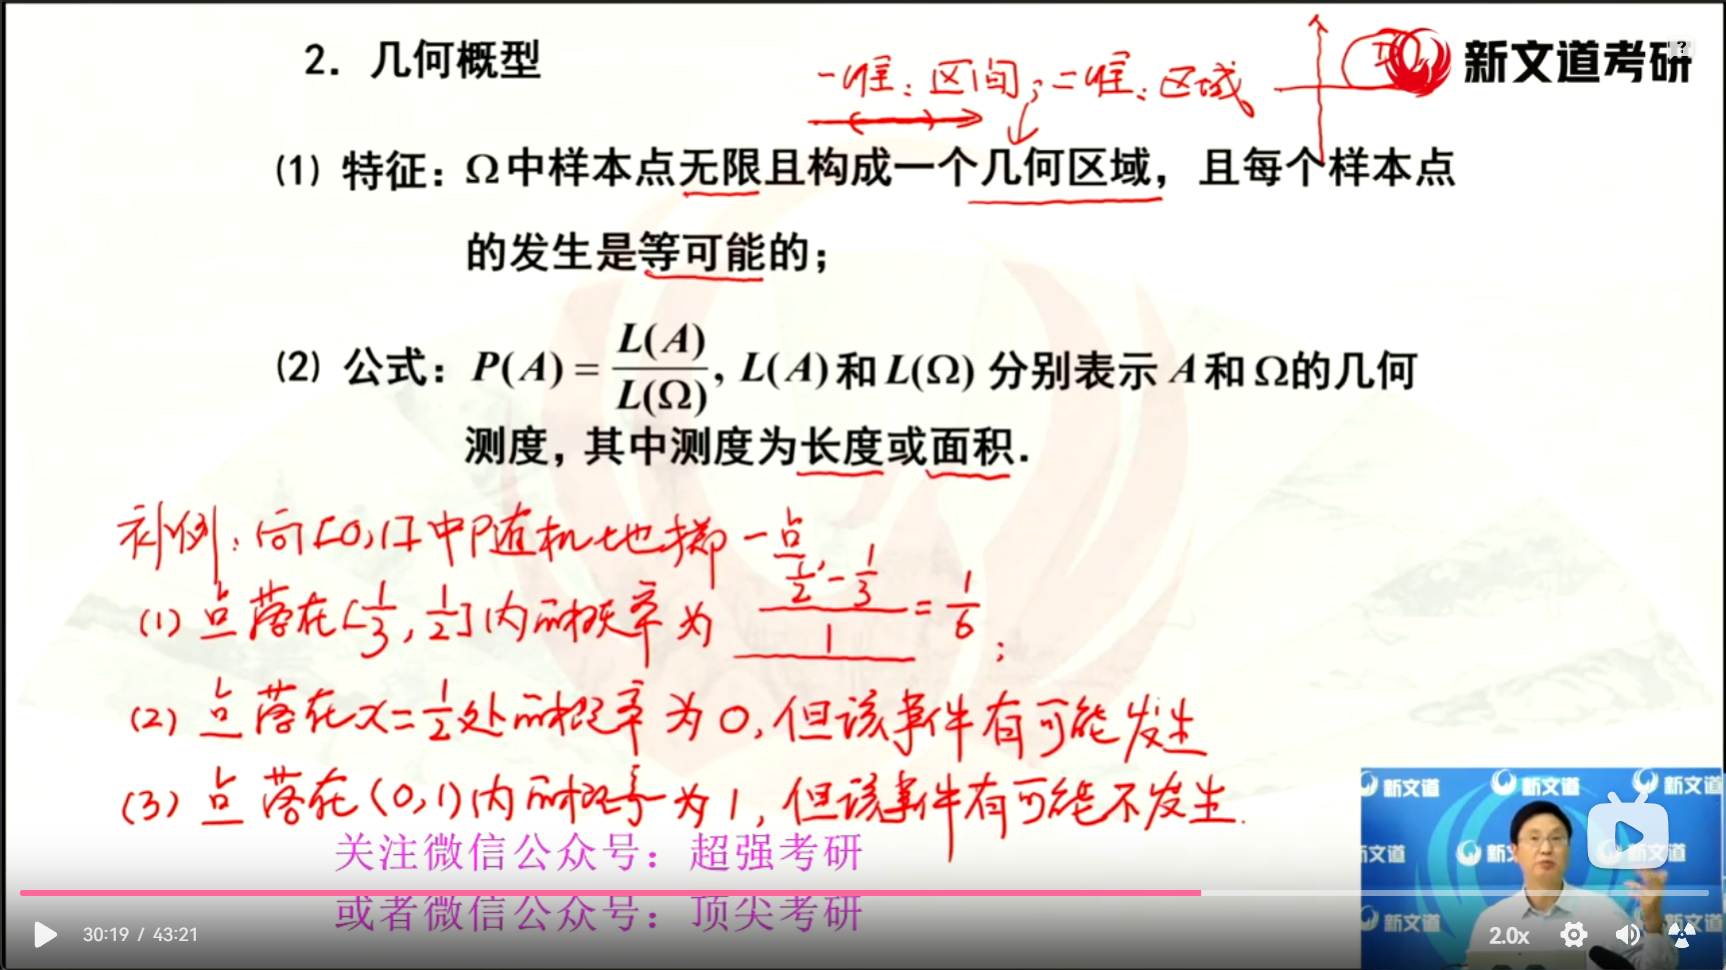 2. 几何概型
一维：区间；二维：区域。
新文道考研
(1) 特征：Ω中样本点无限且构成一个几何区域，且每个样本点
的发生是等可能的；
(2) 公式：P(A) = L(A)/L(Ω), L(A)和L(Ω) 分别表示 A和Ω的几何
测度，其中测度为长度或面积.
补例：向[0,1]中随机地掷一点
(1) 点落在[1/3, 1/2]内的概率为 (1/2 - 1/3)/1 = 1/6；
(2) 点落在x=1/2处的概率为0，但该事件有可能发生
(3) 点落在(0,1)内的概率为1，但该事件有可能不发生.
关注微信公众号：超强考研
或者微信公众号：顶尖考研
新文道 新文道 新文道
新文道 新文道
新文道
30:19 / 43:21
2.0x